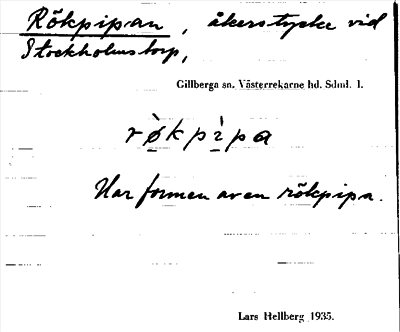 Rökpipan, åkerstycke vid
Stockholmstorp,
Gillberga sn. Västerrekarne hd. Sdml. 1.
r ø̀ k p ì p a
Har formen av en rökpipa.
Lars Hellberg 1935.